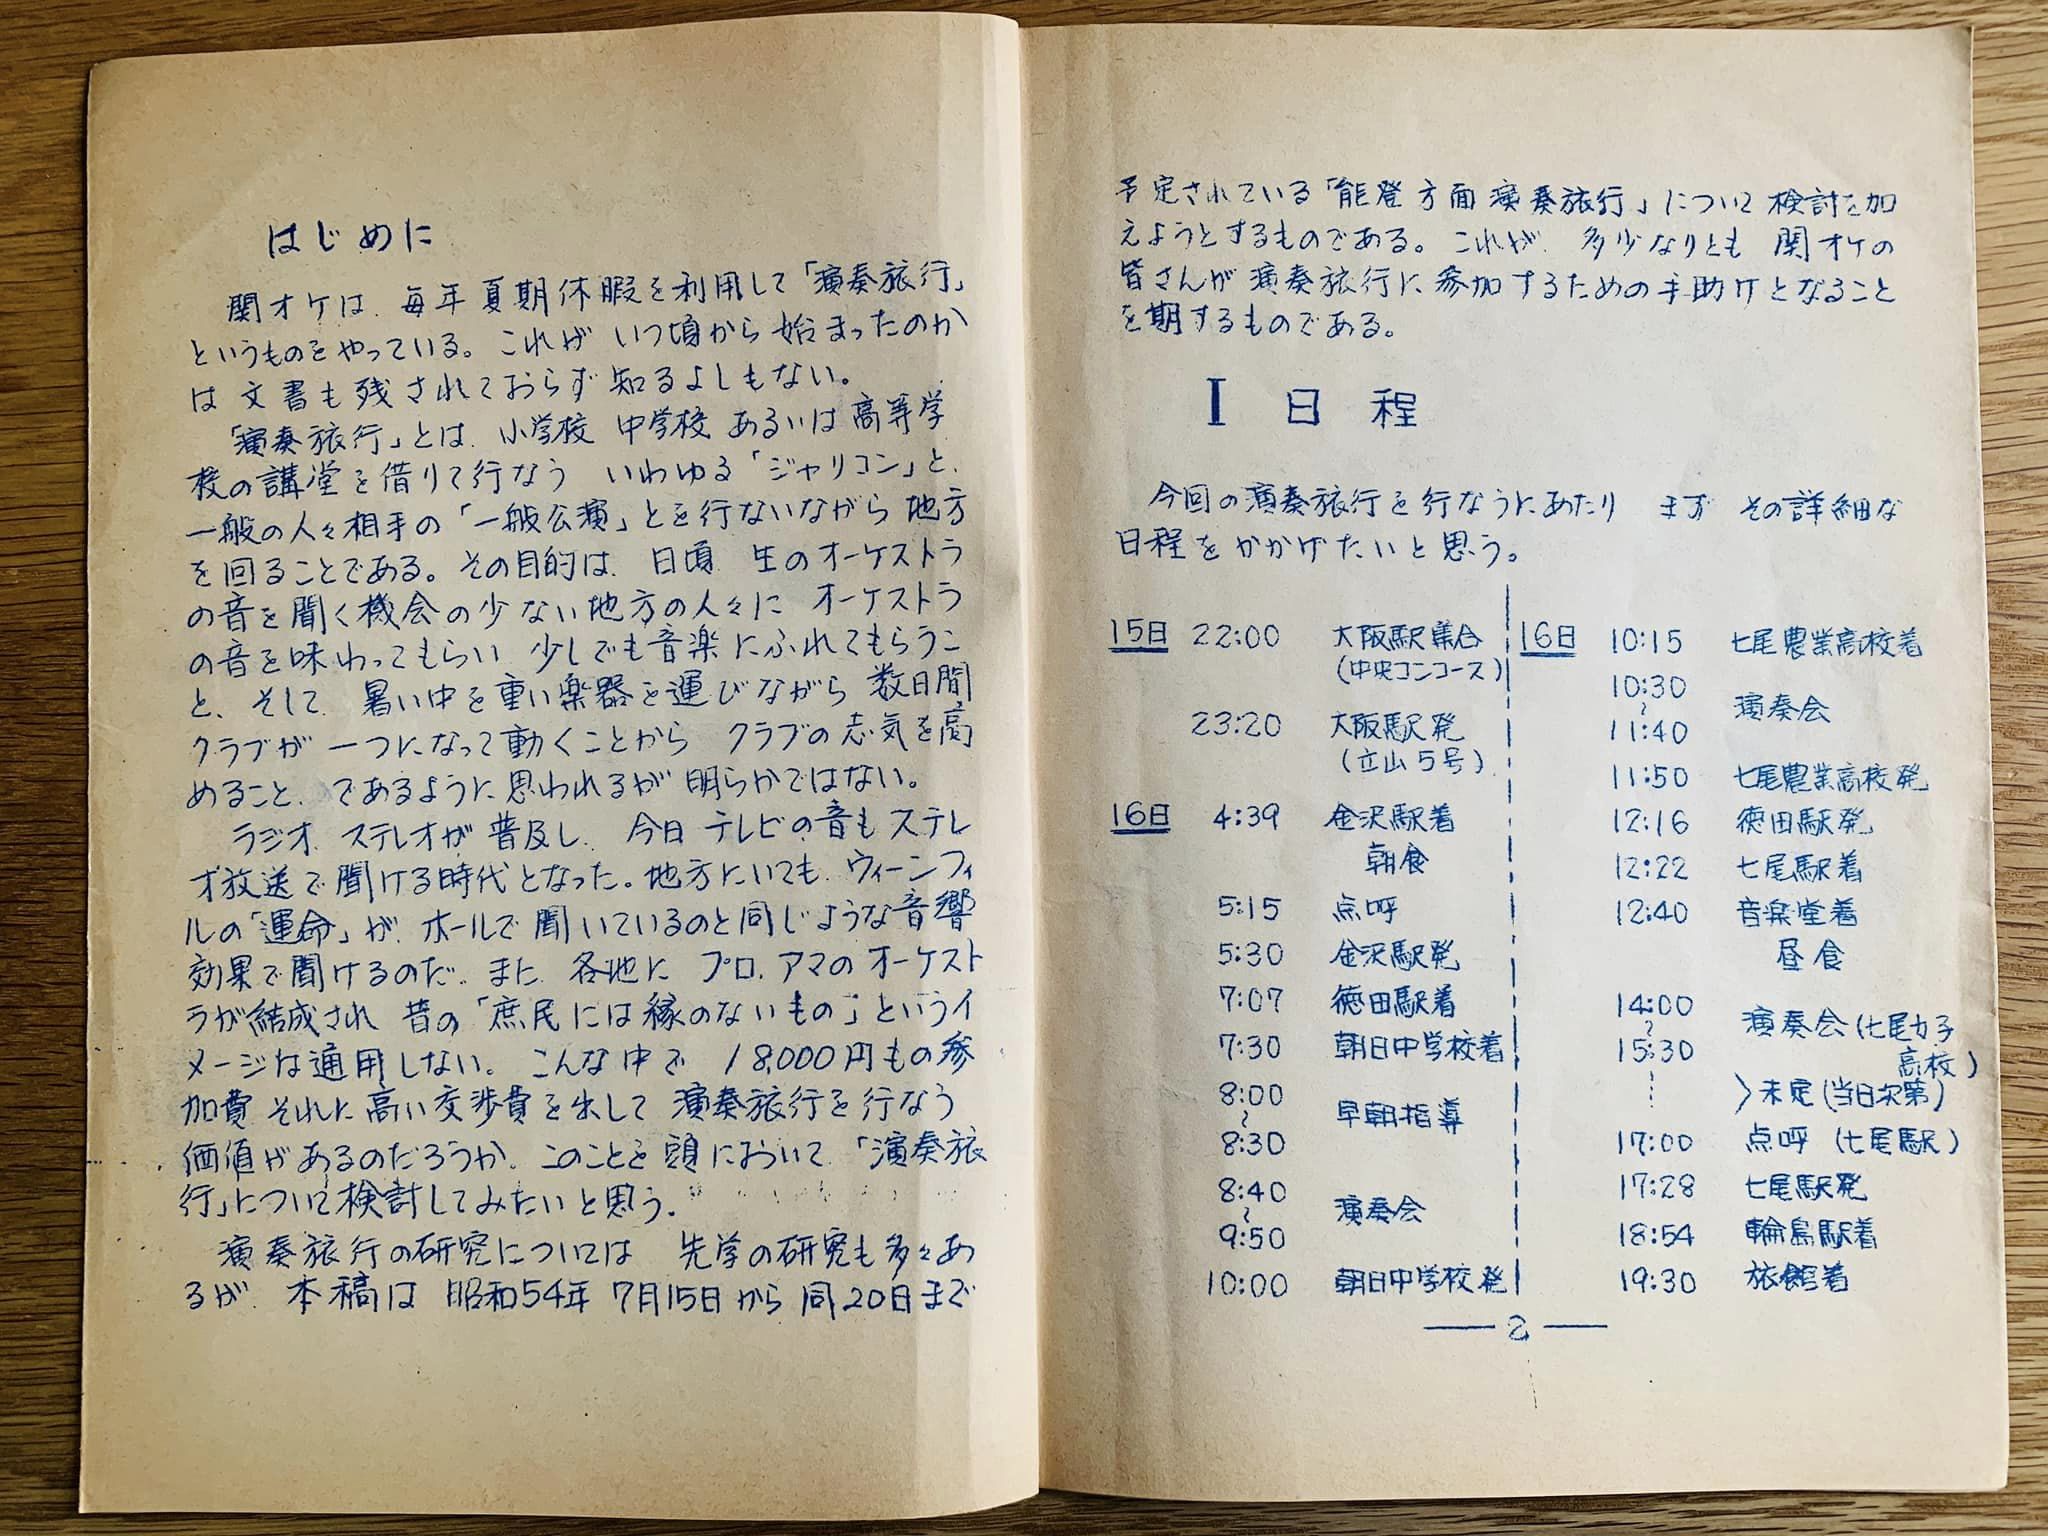 はじめに
関オケは、毎年夏期休暇を利用して「演奏旅行」
というものをやっている。これが いつ頃から始まったのか
は文書も残されておらず知るよしもない。
「演奏旅行」とは、小学校 中学校 あるいは高等学
校の講堂を借りて行なう いわゆる「ジャリコン」と、
一般の人々相手の「一般公演」とを行ないながら地方
を回ることである。その目的は、日頃 生のオーケストラ
の音を聞く機会の少ない地方の人々に オーケストラ
の音を味わってもらい 少しでも音楽にふれてもらうこ
と、そして、暑い中を重い楽器を運びながら数日間
クラブが一つになって動くことから クラブの志気を高
めること、であるように思われるが明らかではない。
ラジオ、ステレオが普及し、今日テレビの音もステレ
オ放送で聞ける時代となった。地方にいても、ウィーンフィ
ルの「運命」が、ホールで聞いているのと同じような音響
効果で聞けるのだ。また、各地に プロ、アマのオーケスト
ラが結成され 昔の「庶民には縁のないもの」というイ
メージは通用しない。こんな中で 18,000円もの参
加費、それに高い交渉費を出して 演奏旅行を行なう
価値があるのだろうか。このことを頭において、「演奏旅
行」について検討してみたいと思う。
演奏旅行の研究については 先学の研究も多々あ
るが、本稿は 昭和54年 7月15日から 同20日まで
予定されている「能登方面演奏旅行」について検討を加
えようとするものである。これが、多少なりとも 関オケの
皆さんが演奏旅行に参加するための手助けとなること
を期するものである。
I 日程
今回の演奏旅行を行なうにあたり まず その詳細な
日程をかかげたいと思う。
15日 22:00 大阪駅集合
(中央コンコース)
23:20 大阪駅発
(立山5号)
16日 4:39 金沢駅着
朝食
5:15 点呼
5:30 金沢駅発
7:07 徳田駅着
7:30 朝日中学校着
8:00
〜 早朝指導
8:30
8:40
〜 演奏会
9:50
10:00 朝日中学校発
16日 10:15 七尾農業高校着
10:30
〜 演奏会
11:40
11:50 七尾農業高校発
12:16 徳田駅発
12:22 七尾駅着
12:40 音楽堂着
昼食
14:00
〜 演奏会(七尾女子
15:30 高校)
〉未定(当日次第)
17:00 点呼(七尾駅)
17:28 七尾駅発
18:54 輪島駅着
19:30 旅館着
— 2 —